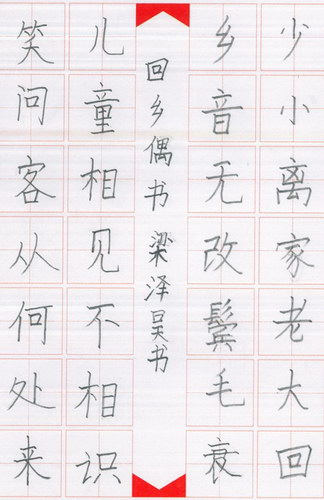 少小离家老大回
乡音无改鬓毛衰
回乡偶书 梁泽昊书
儿童相见不相识
笑问客从何处来